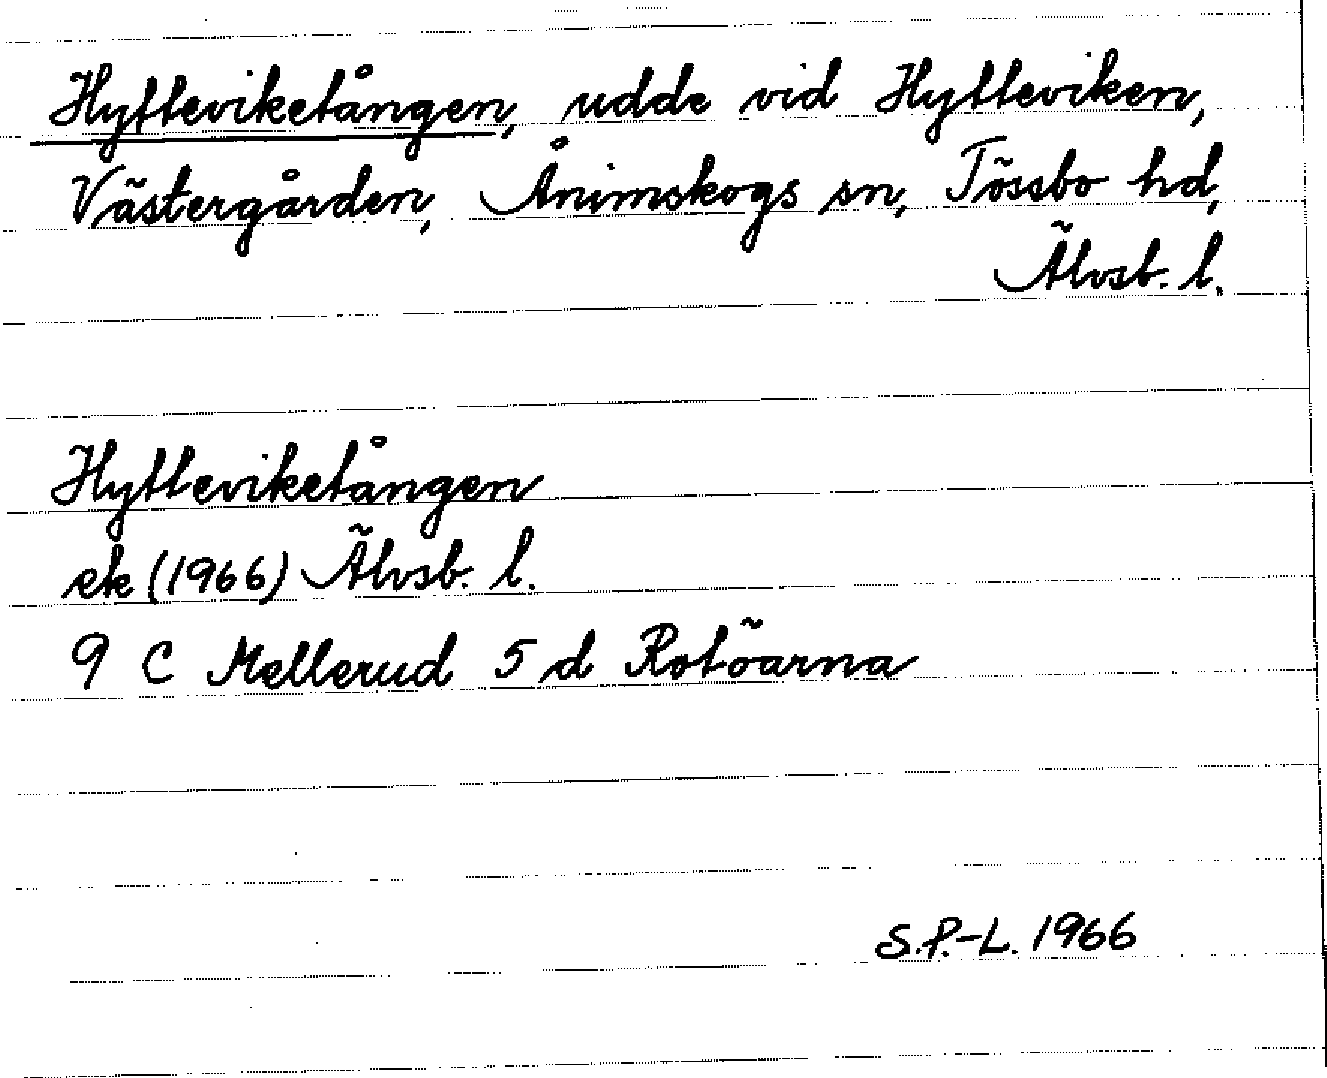 Hytteviketången, udde vid Hytteviken,
Västergården, Ånimskogs sn, Tössbo hd,
Älvsb. l.
Hytteviketången
ek (1966) Älvsb. l.
9 C Mellerud 5 d Rotöarna
S.P.-L. 1966